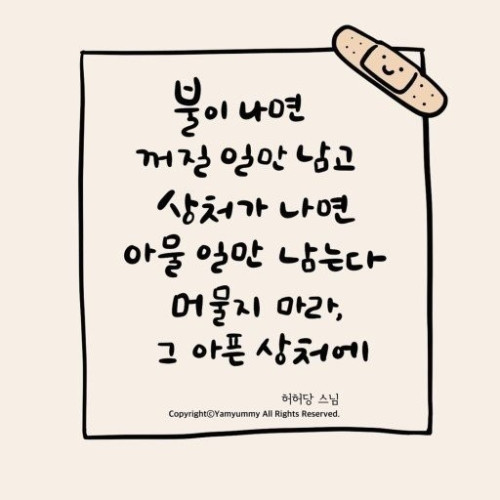 불이 나면
꺼질 일만 남고
상처가 나면
아물 일만 남는다
머물지 마라,
그 아픈 상처에
허허당 스님
CopyrightⓒYamyummy All Rights Reserved.